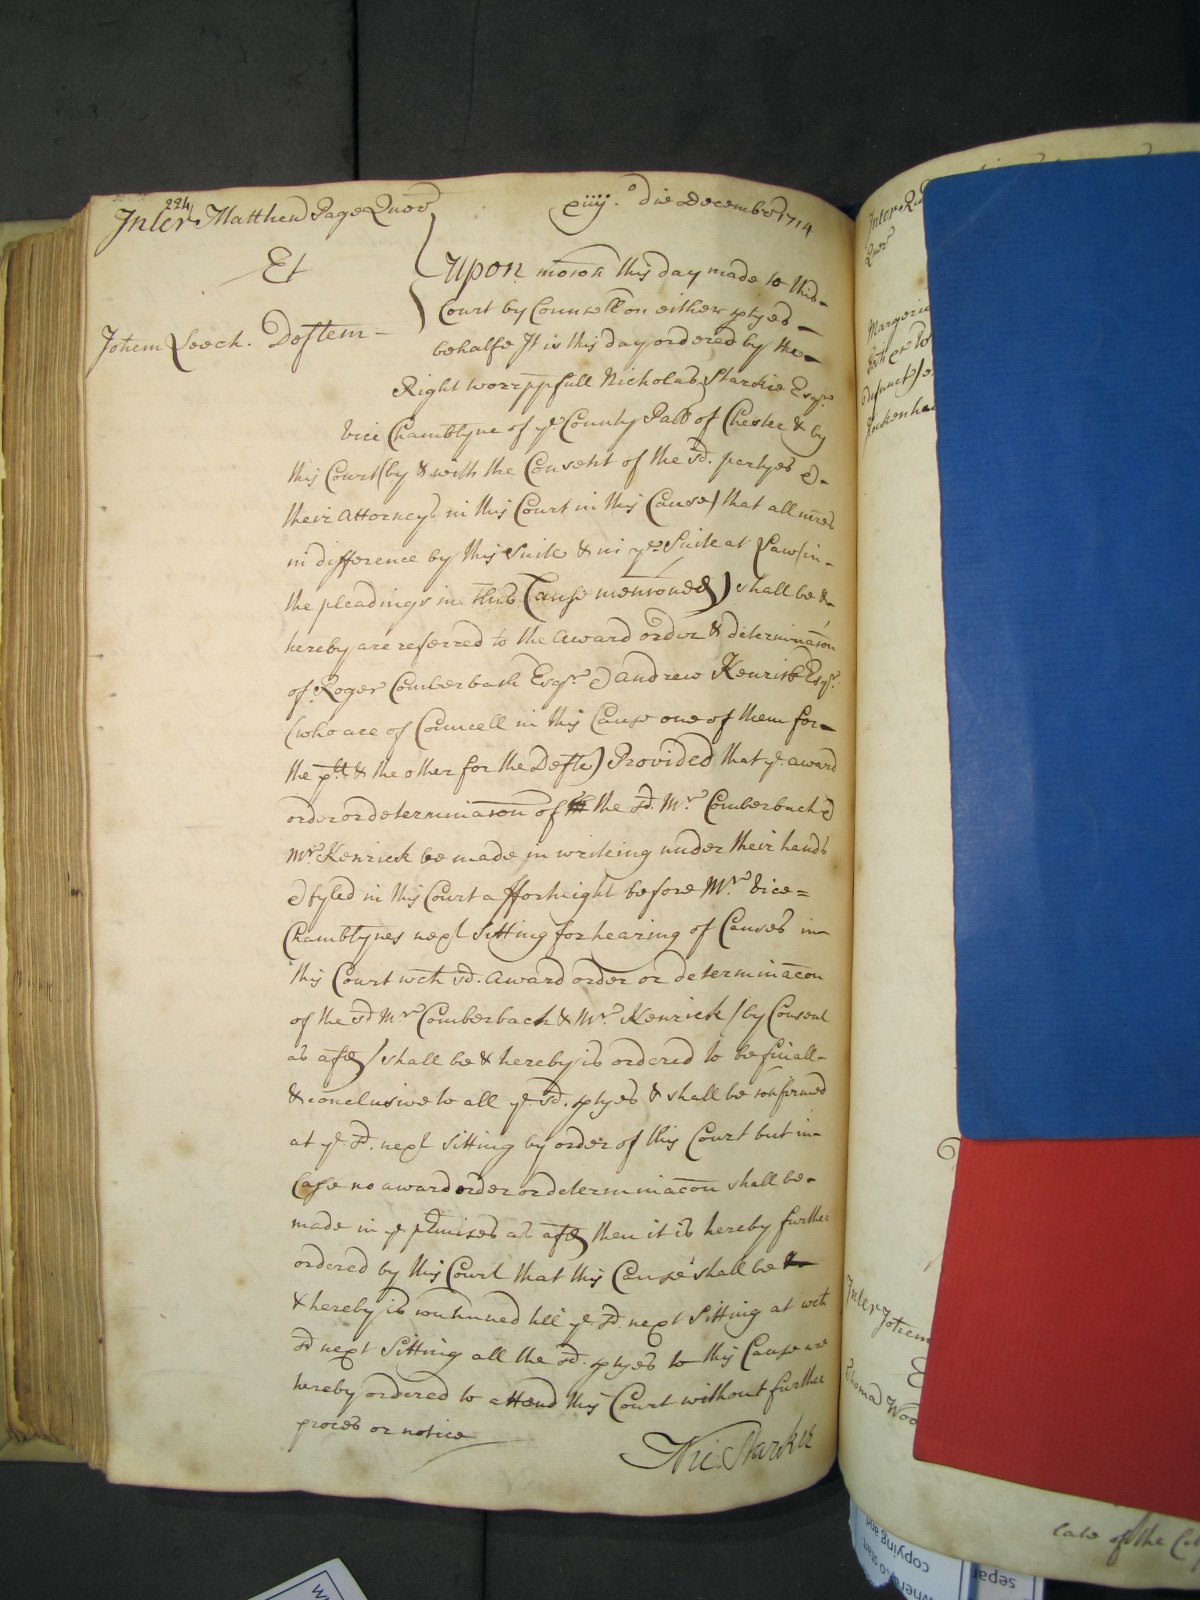 224
Inter Matthew Page Quer
xiiij.o die Decembr 1714
Et
Johem Leech. Deftem
Upon mocon this day made to this
Court by Counsell on either ptyes
behalfe It is this day ordered by the
Right worrppfull Nicholas Starkie Esqr
Vice Chamblyne of ye. County Pall of Chester & by
this Court (by & with the Consent of the sd. partyes &
their Attorneys in this Court in this Cause) that all mres
in difference by this Suite & in ye Suite at Law (in
the pleadings in this Cause menconed) shall be &
hereby are referred to the award order & determinacon
of Roger Comberbach Esqr. & Andrew Kenrick Esqr.
(who are of Councell in this Cause one of them for
the plt & the other for the Defte) Provided that ye. award
order or determinacon of the sd. Mr. Comberbach &
Mr. Kenrick be made in writeing under their hands
& fyled in this Court a ffortnight before Mr. Vice=
Chamblynes next Sitting for hearing of Causes in
this Court wch sd. award order or determinacon
of the sd Mr. Comberbach & Mr. Kenrick / by Consent
as afs / shall be & hereby is ordered to be finall
& conclusive to all ye. sd. ptyes & shall be confirmed
at ye. sd. next Sitting by order of this Court but in
Case no award order or determinacon shall be
made in ye pmises as afs then it is hereby further
ordered by this Court that this Cause shall be &
& hereby is continued till ye. sd. next Sitting at wch
sd next Sitting all the sd. ptyes to this Cause are
hereby ordered to attend this Court without further
proces or notice
Nic: Starkie
Inter
Quer
Inter Johem
Thomas Woo
late of the